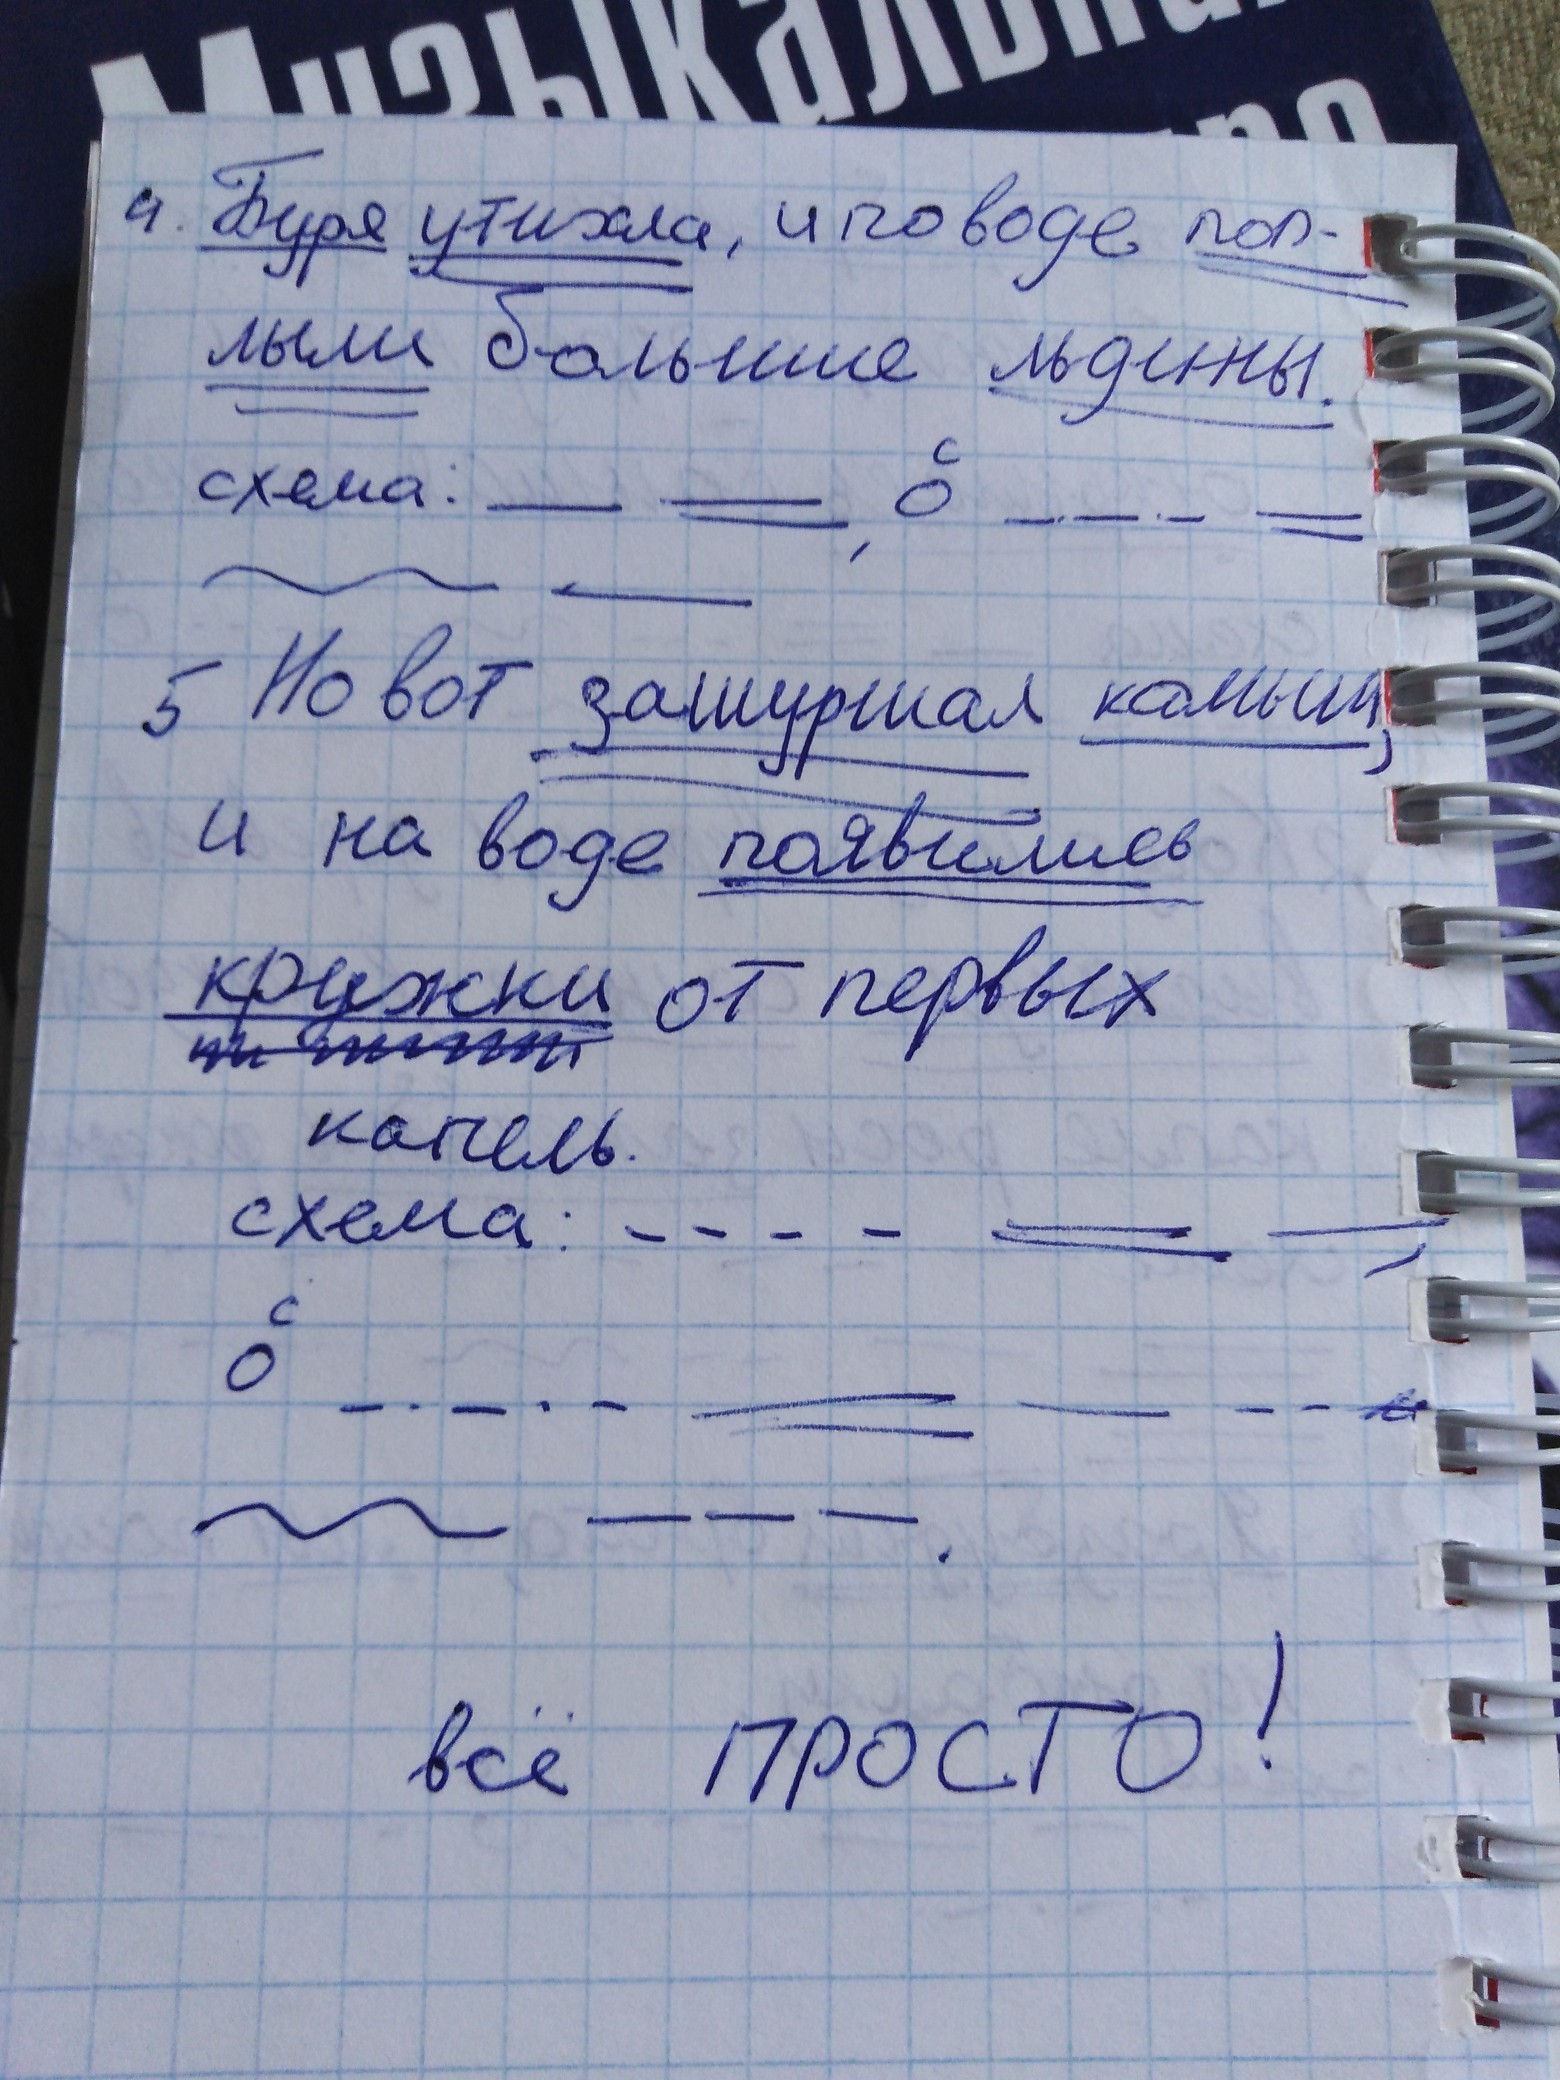 Музыкальный
4. Буря утихла, и по воде поп-
лыли большие льдины.
схема: ,
с
О
5 Но вот зашуршал камыш,
и на воде появились
кружки от первых
капель.
схема: ,
с
О
.
всё ПРОСТО!